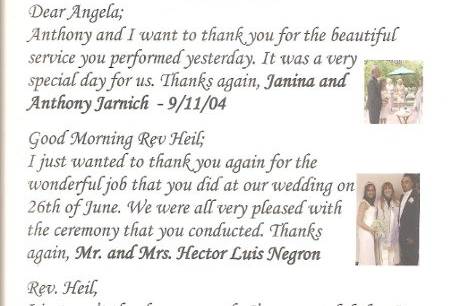 Dear Angela;
Anthony and I want to thank you for the beautiful
service you performed yesterday. It was a very
special day for us. Thanks again, Janina and
Anthony Jarnich - 9/11/04
Good Morning Rev Heil;
I just wanted to thank you again for the
wonderful job that you did at our wedding on
26th of June. We were all very pleased with
the ceremony that you conducted. Thanks
again, Mr. and Mrs. Hector Luis Negron
Rev. Heil,